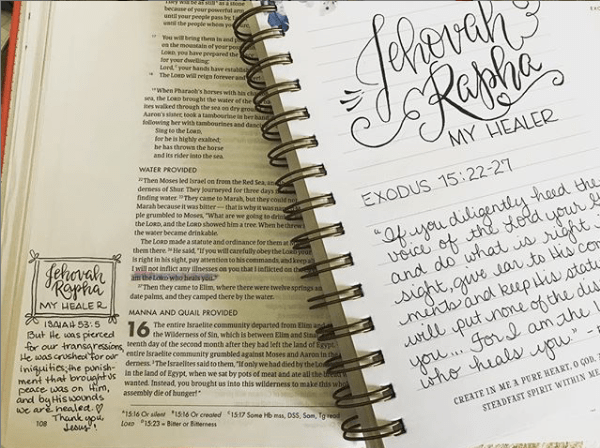 They will be as still as a stone
because of your powerful arm
until your people pass by, Lord,
until the people whom you
You will bring them in and
on the mountain of your
Lord, you have prepared the
for your dwelling;
Lord, your hands have establish
The LORD will reign forever and
When Pharaoh's horses with his
sea, the LORD brought the water of the
ites walked through the sea on dry
Aaron's sister, took a tambourine in her hand
following her with tambourines and
Sing to the LORD,
for he is highly exalted;
he has thrown the horse
and its rider into the sea.
WATER PROVIDED
22 Then Moses led Israel on from the Red Sea,
derness of Shur. They journeyed for three days
finding water. 23 They came to Marah, but they could not
Marah because it was bitter — that is why it was
ple grumbled to Moses, "What are we going to drink
the LORD, and the LORD showed him a tree. When he threw
the water became drinkable.
The LORD made a statute and ordinance for them at
them there. 26 He said, "If you will carefully obey the LORD your
is right in his sight, pay attention to his commands, and keep all
I will not inflict any illnesses on you that I inflicted on the
am the LORD who heals you."
27 Then they came to Elim, where there were twelve springs
date palms, and they camped there by the water.
MANNA AND QUAIL PROVIDED
16 The entire Israelite community departed from Elim
the Wilderness of Sin, which is between Elim and Sinai
teenth day of the second month after they had left the land of Egypt.
entire Israelite community grumbled against Moses and Aaron in the
derness. 3 The Israelites said to them, "If only we had died by the LORD's
in the land of Egypt, when we sat by pots of meat and ate all the bread
wanted. Instead, you brought us into this wilderness to make this
assembly die of hunger!"
15:16 Or silent 15:16 Or created 15:17 Some Hb mss, DSS, Sam, Tg read
LORD 15:23 = Bitter or Bitterness
Jehovah
Rapha
MY HEALER
ISAIAH 53:5
But He was pierced
for our transgressions,
He was crushed for our
iniquities; the punish-
ment that brought us
peace was on Him,
and by His wounds
we are healed. ♡
Thank you,
Jesus!
108
Jehovah
Rapha
MY HEALER
EXODUS 15:22-27
"If you diligently heed the
voice of the Lord your G
and do what is right
sight, give ear to His com
ments and keep His stat
will put none of the dis
you... For I am the
who heals you."
CREATE IN ME A PURE HEART, O GOD,
STEADFAST SPIRIT WITHIN ME